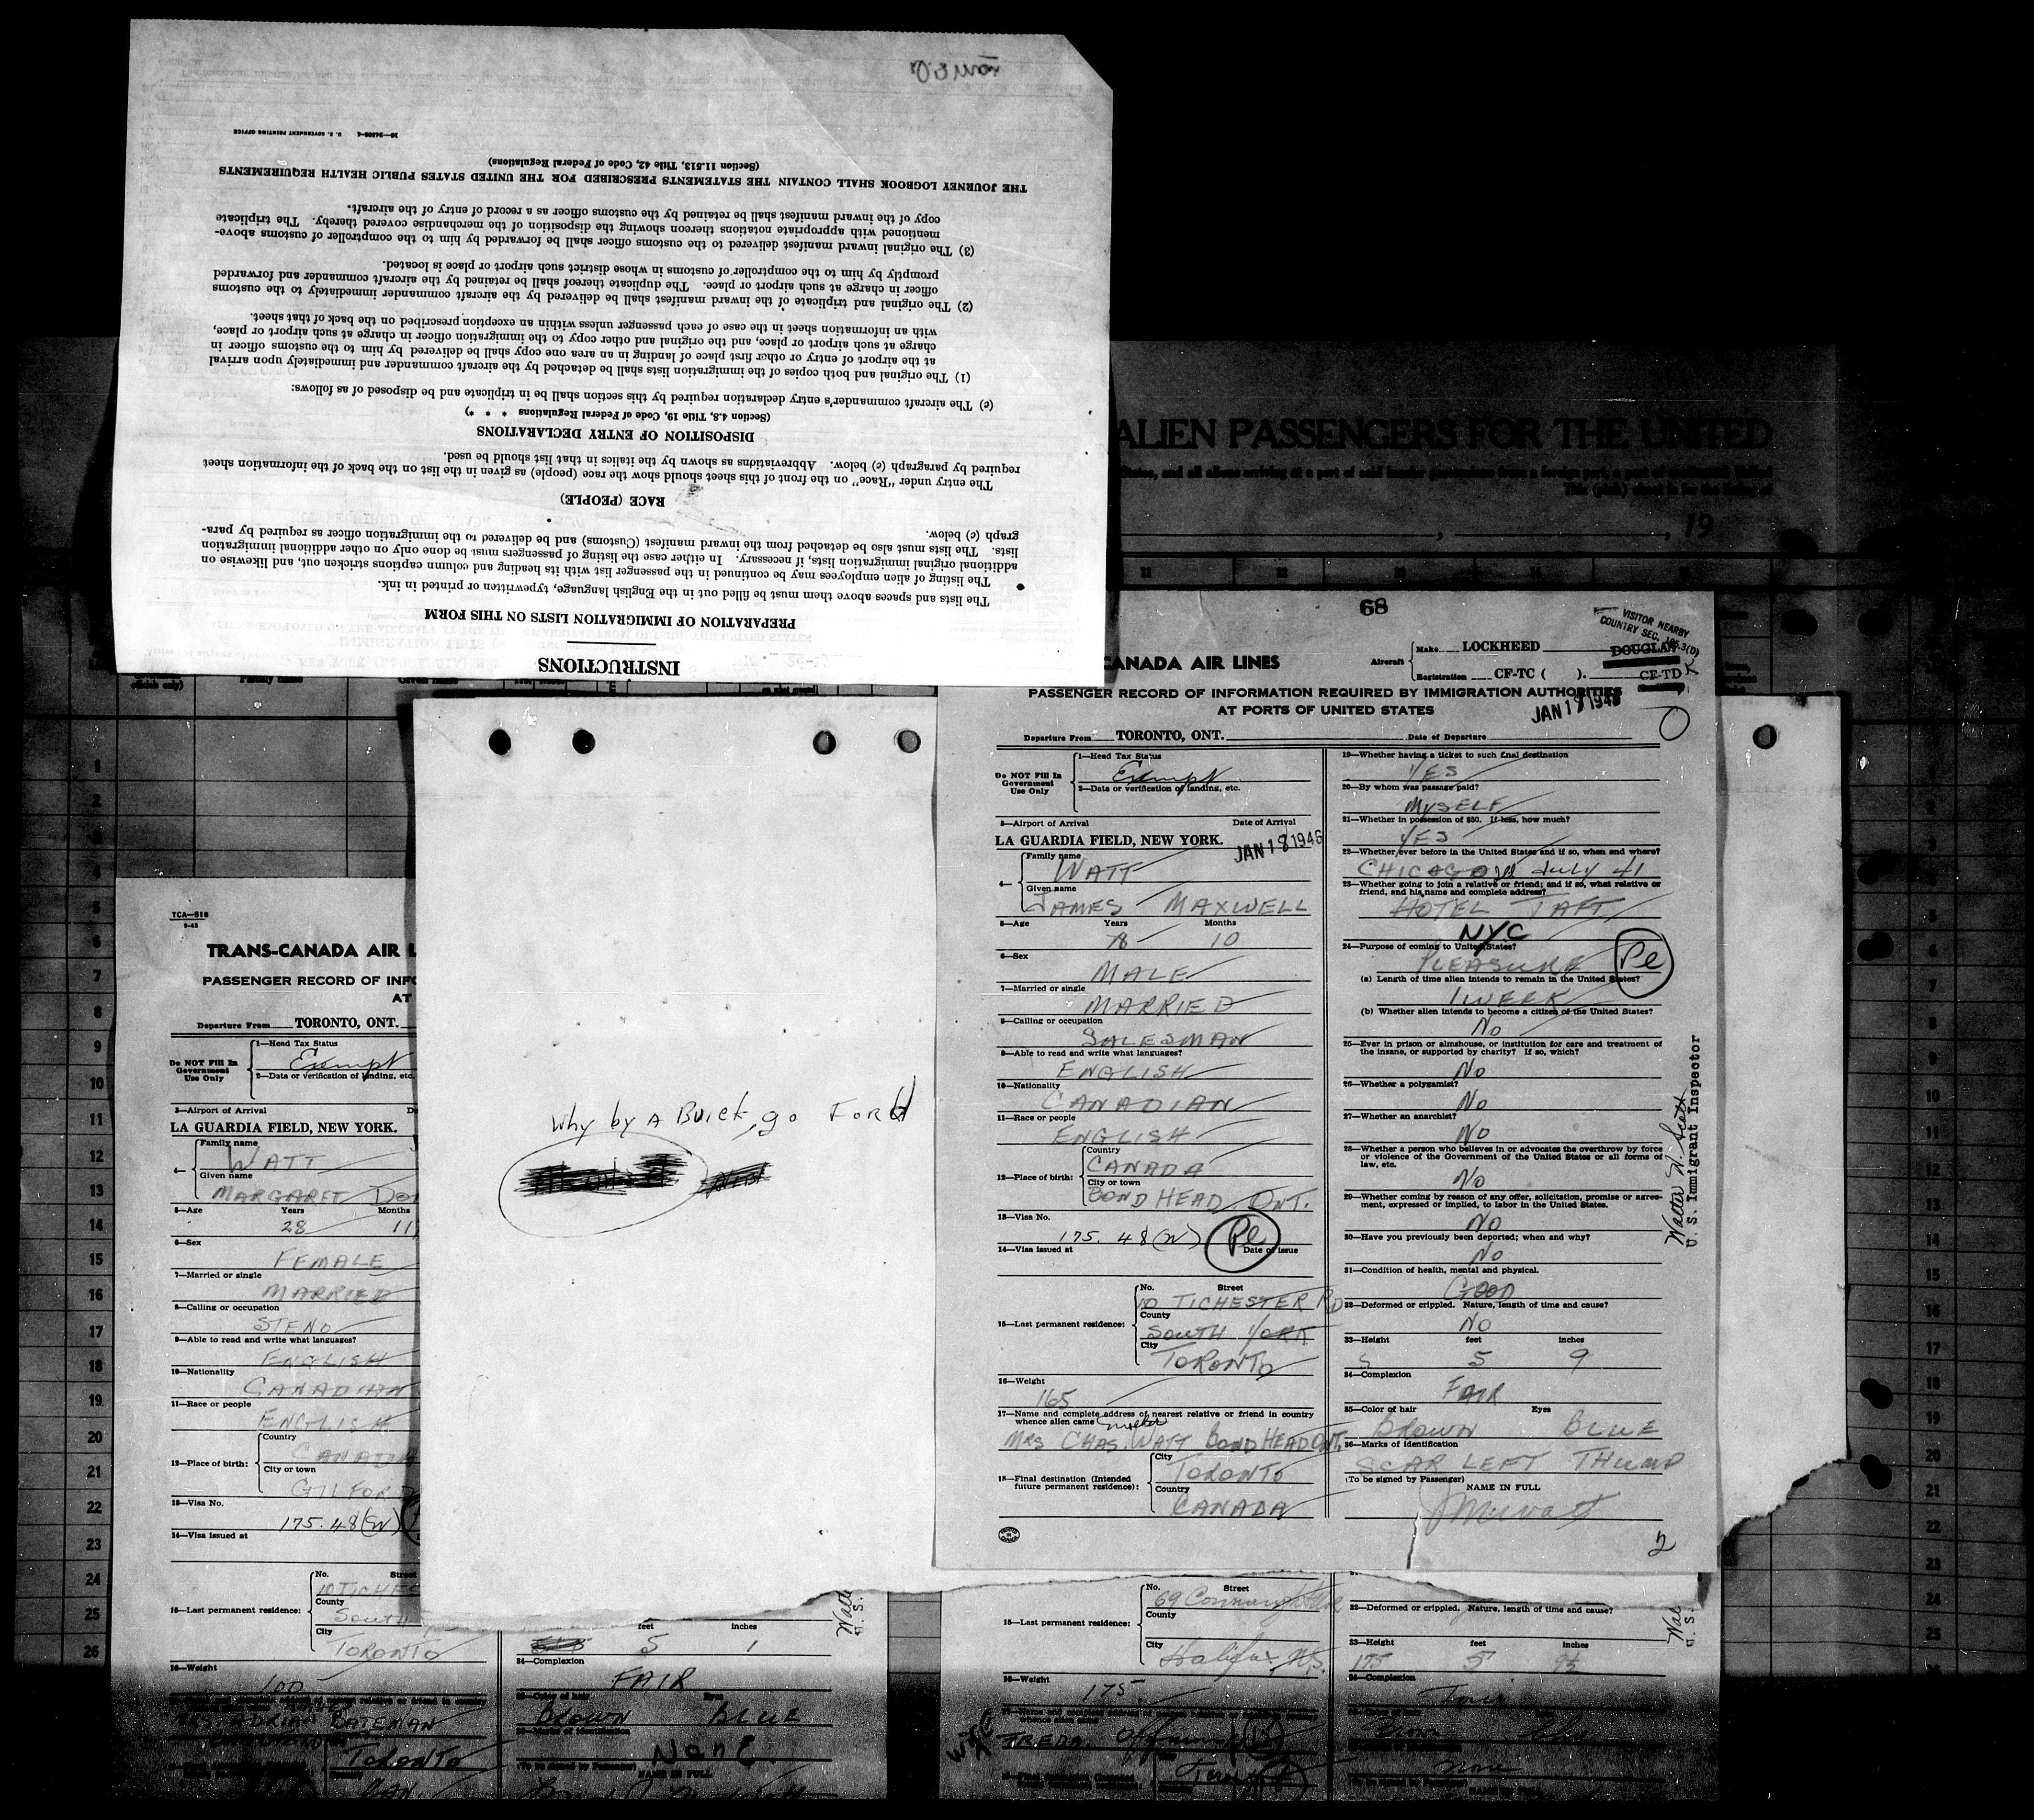 INSTRUCTIONS
PREPARATION OF IMMIGRATION LISTS ON THIS FORM
The lists and spaces above them must be filled out in the English language, typewritten or printed in ink.
The listing of alien employees may be continued in the passenger list with its heading and column captions stricken out, and likewise on
additional original immigration lists, if necessary. In either case the listing of passengers must be done only on other additional immigration
lists. The lists must also be detached from the inward manifest (Customs) and be delivered to the immigration officer as required by para-
graph (c) below.
RACE (PEOPLE)
The entry under "Race" on the front of this sheet should show the race (people) as given in the list on the back of the information sheet
required by paragraph (c) below. Abbreviations as shown by the italics in that list should be used.
DISPOSITION OF ENTRY DECLARATIONS
(Section 4.8, Title 19, Code of Federal Regulations * * *)
(c) The aircraft commander's entry declaration required by this section shall be in triplicate and be disposed of as follows:
(1) The original and both copies of the immigration lists shall be detached by the aircraft commander and immediately upon arrival
at the airport of entry or other first place of landing in an area one copy shall be delivered by him to the customs officer in
charge at such airport or place, and the original and other copy to the immigration officer in charge at such airport or place,
with an information sheet in the case of each passenger unless within an exception prescribed on the back of that sheet.
(2) The original and triplicate of the inward manifest shall be delivered by the aircraft commander immediately to the customs
officer in charge at such airport or place. The duplicate thereof shall be retained by the aircraft commander and forwarded
promptly by him to the comptroller of customs in whose district such airport or place is located.
(3) The original inward manifest delivered to the customs officer shall be forwarded by him to the comptroller of customs above-
mentioned with appropriate notations thereon showing the disposition of the merchandise covered thereby. The triplicate
copy of the inward manifest shall be retained by the customs officer as a record of entry of the aircraft.
THE JOURNEY LOGBOOK SHALL CONTAIN THE STATEMENTS PRESCRIBED FOR THE UNITED STATES PUBLIC HEALTH REQUIREMENTS
(Section 11.513, Title 42, Code of Federal Regulations)
U. S. GOVERNMENT PRINTING OFFICE
ALIEN PASSENGERS FOR THE UNITED
, 19
Why by A Buick, go Ford
68
VISITOR NEARBY
COUNTRY SEC.
CANADA AIR LINES
Aircraft Make LOCKHEED DOUGLAS
Registration CF-TC ( ). CF-TD
PASSENGER RECORD OF INFORMATION REQUIRED BY IMMIGRATION AUTHORITIES
AT PORTS OF UNITED STATES
JAN 18 1946
Departure From TORONTO, ONT. Date of Departure
Do NOT Fill In
Government
Use Only
1—Head Tax Status
Exempt
2—Data or verification of landing, etc.
3—Airport of Arrival Date of Arrival
LA GUARDIA FIELD, NEW YORK. JAN 18 1946
4— Family name
WATT
Given name
JAMES MAXWELL
5—Age Years Months
10
6—Sex
MALE
7—Married or single
MARRIED
8—Calling or occupation
SALESMAN
9—Able to read and write what languages?
ENGLISH
10—Nationality
CANADIAN
11—Race or people
ENGLISH
12—Place of birth: Country
CANADA
City or town
BOND HEAD, ONT.
13—Visa No.
175.48(W) Pl
14—Visa issued at Date of issue
15—Last permanent residence: No. Street
10 TICHESTER RD
County
SOUTH YORK
City
TORONTO
16—Weight
165
17—Name and complete address of nearest relative or friend in country
whence alien came mother
MRS CHAS. WATT BOND HEAD ONT.
18—Final destination (Intended
future permanent residence): City
TORONTO
Country
CANADA
19—Whether having a ticket to such final destination
YES
20—By whom was passage paid?
MYSELF
21—Whether in possession of $50. If less, how much?
YES
22—Whether ever before in the United States and if so, when and where?
CHICAGO July 41
23—Whether going to join a relative or friend; and if so, what relative or
friend, and his name and complete address?
HOTEL TAFT
NYC
24—Purpose of coming to United States?
PLEASURE Pl
(a) Length of time alien intends to remain in the United States?
1 WEEK
(b) Whether alien intends to become a citizen of the United States?
No
25—Ever in prison or almshouse, or institution for care and treatment of
the insane, or supported by charity? If so, which?
No
26—Whether a polygamist?
No
27—Whether an anarchist?
No
28—Whether a person who believes in or advocates the overthrow by force
or violence of the Government of the United States or all forms of
law, etc.
No
29—Whether coming by reason of any offer, solicitation, promise or agree-
ment, expressed or implied, to labor in the United States.
No
30—Have you previously been deported; when and why?
No
31—Condition of health, mental and physical.
GOOD
32—Deformed or crippled. Nature, length of time and cause?
No
33—Height feet inches
5 9
34—Complexion
FAIR
35—Color of hair Eyes
BROWN BLUE
36—Marks of identification
SCAR LEFT THUMP
(To be signed by Passenger)
NAME IN FULL
2
Walter W. Scott
U. S. Immigrant Inspector
TCA—518
9-45
TRANS-CANADA AIR L
PASSENGER RECORD OF INFO
AT
Departure From TORONTO, ONT.
Do NOT Fill In
Government
Use Only
1—Head Tax Status
Exempt
2—Data or verification of landing, etc.
3—Airport of Arrival
LA GUARDIA FIELD, NEW YORK.
4— Family name
WATT
Given name
MARGARET
5—Age Years Months
28 11
6—Sex
FEMALE
7—Married or single
MARRIED
8—Calling or occupation
STENO
9—Able to read and write what languages?
ENGLISH
10—Nationality
CANADIAN
11—Race or people
ENGLISH
12—Place of birth: Country
CANADA
City or town
GILFORD
13—Visa No.
175.48(W)
14—Visa issued at
15—Last permanent residence: No. Street
10 TICHES
County
SOUTH
City
TORONTO
16—Weight
100
MRS. ADRIAN BATEMAN
TORONTO
feet inches
5 1
34—Complexion
FAIR
BROWN BLUE
NonE
NAME IN FULL
15—Last permanent residence: No. Street
69
County
City
Halifax N.S.
16—Weight
175.
32—Deformed or crippled. Nature, length of time and cause?
33—Height feet inches
175 5 9½
34—Complexion
Fair
Brown Blue
None